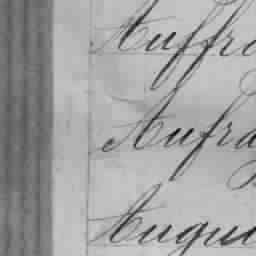 Auffra
Aufra
Augu